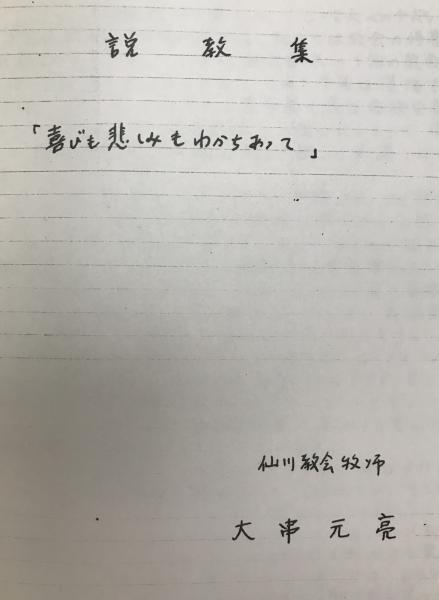 説教集
「喜びも悲しみもわかちあって」
仙川教会牧師
大串元亮